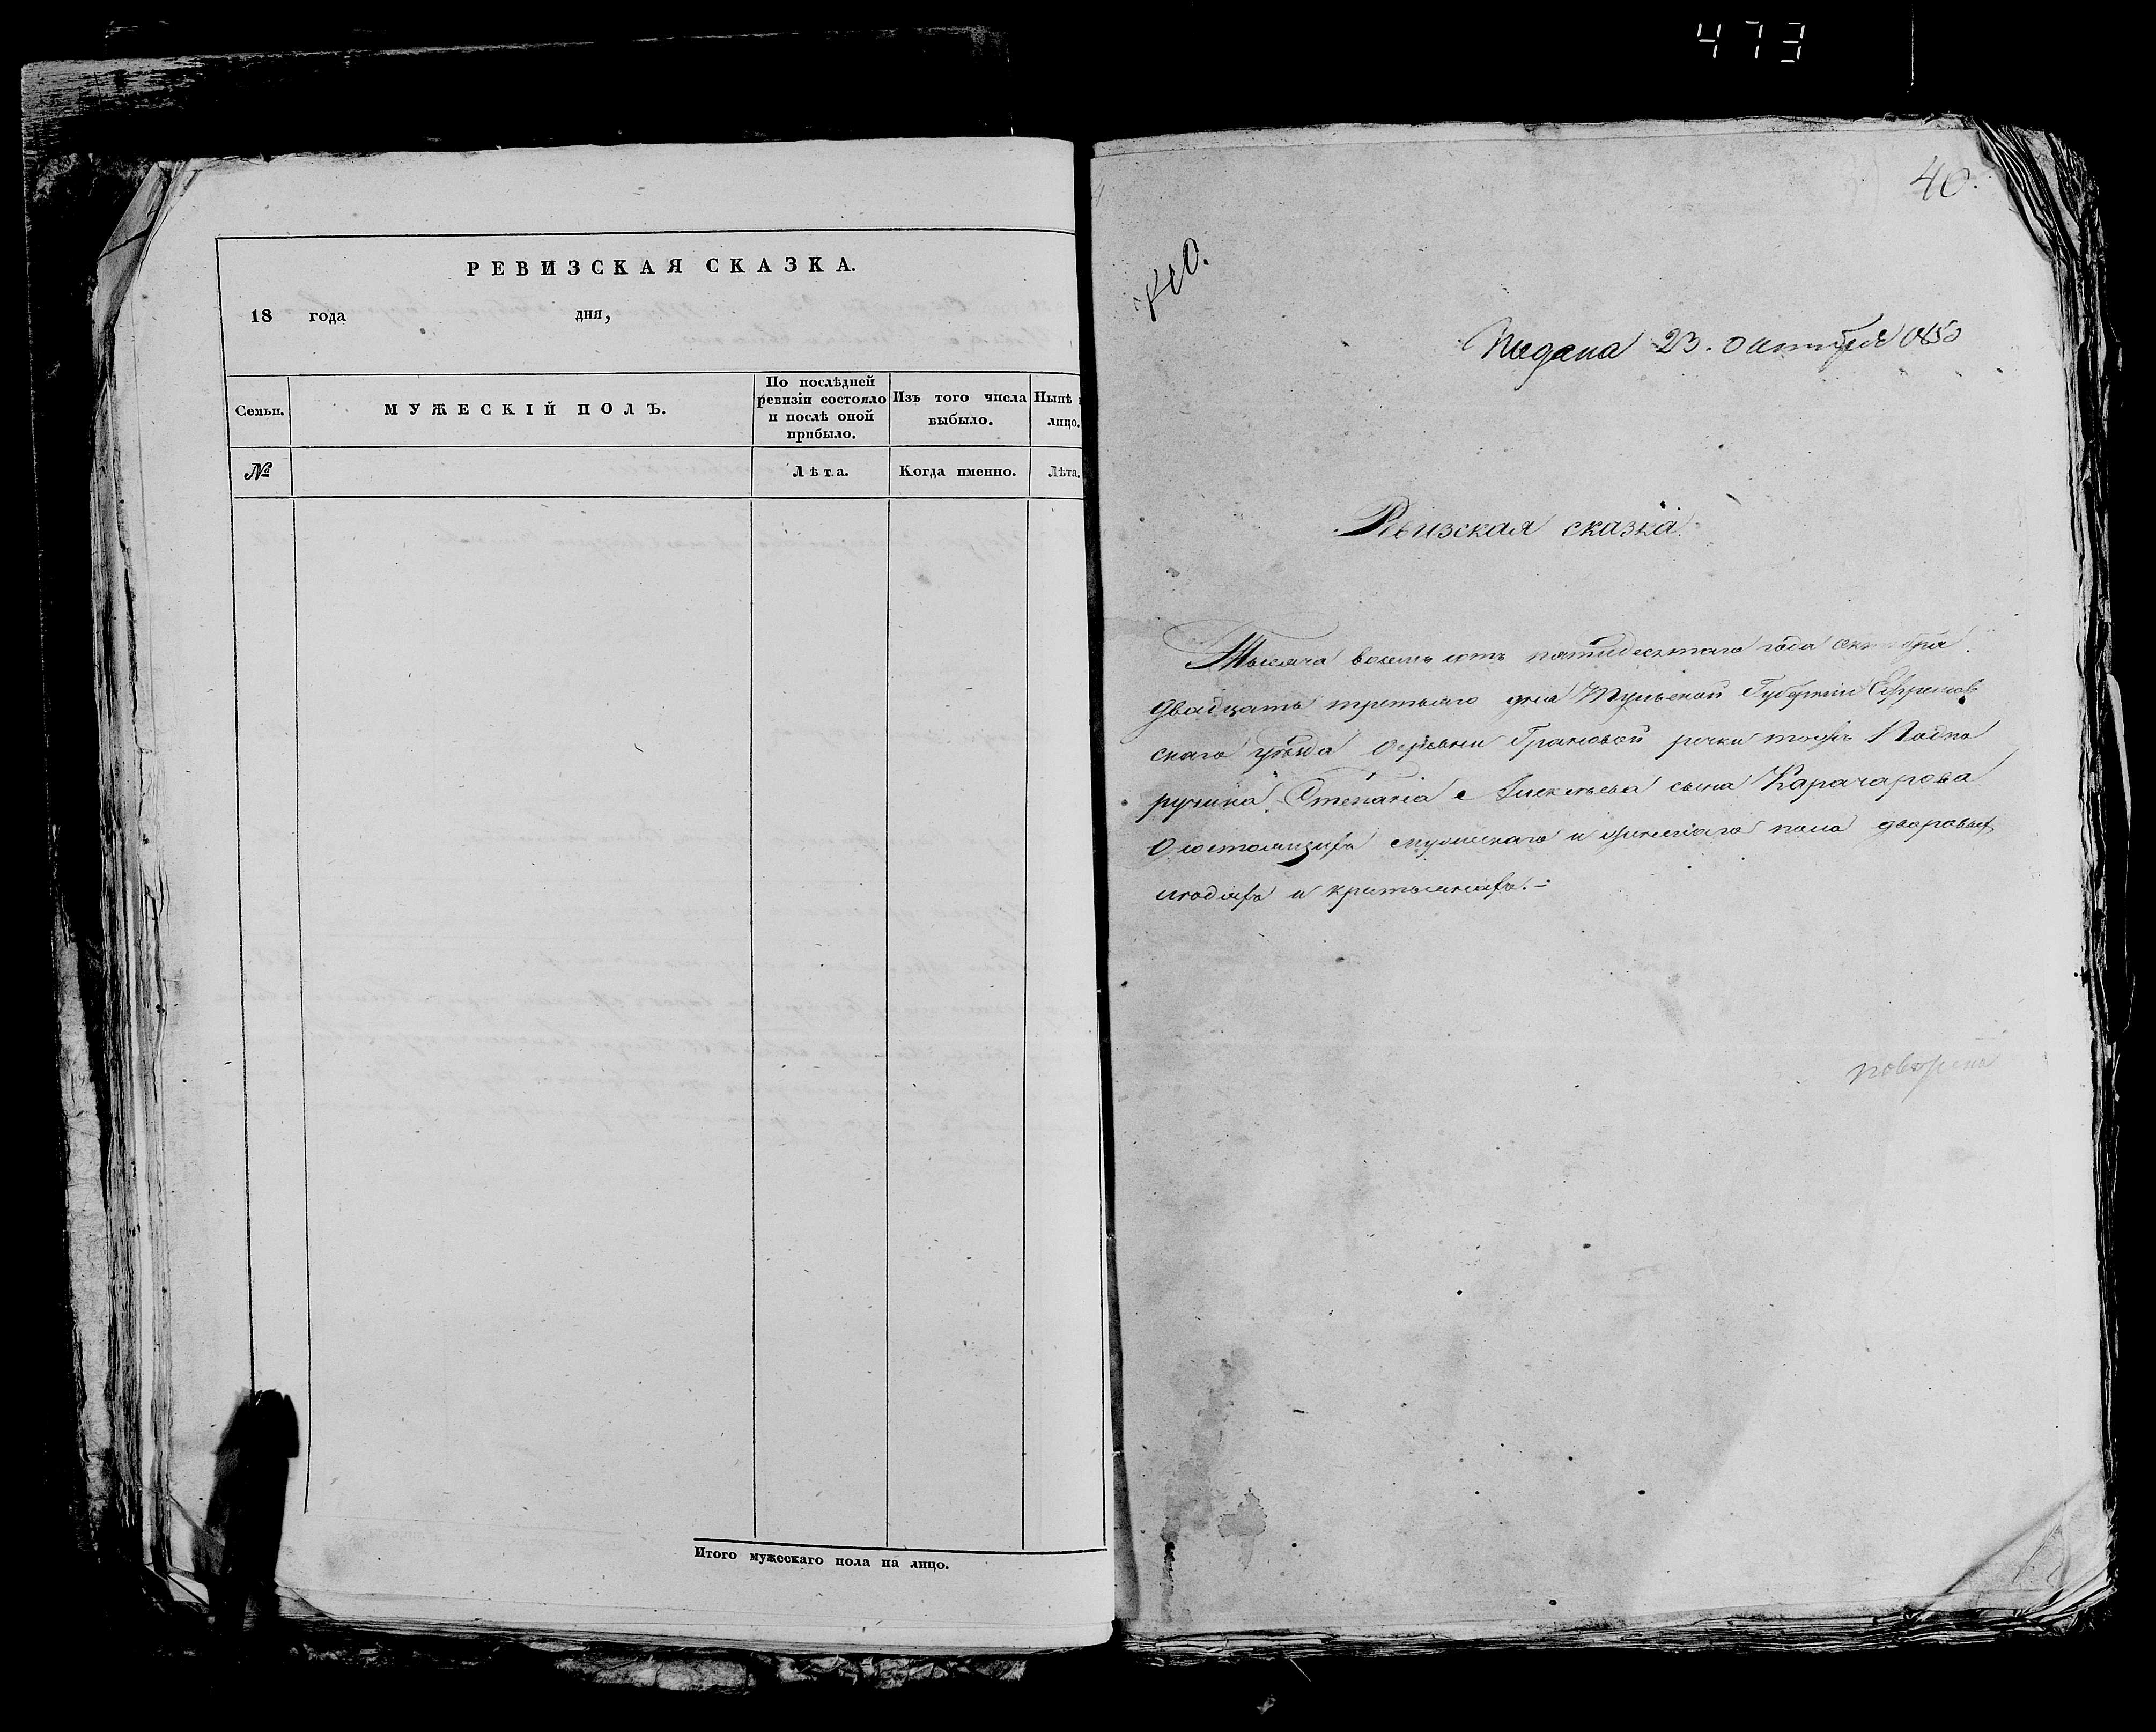 473
РЕВИЗСКАЯ СКАЗКА.
18 года дня,
Семьи.
МУЖЕСКІЙ ПОЛЪ.
По послѣдней
ревизіи состояло
и послѣ оной
прибыло.
Изъ того числа
выбыло.
Нынѣ
лицо.
№
Лѣта.
Когда именно.
Лѣта.
Итого мужескаго пола на лицо.
40.
Подана 23. октября 1850
Ревизская сказка.
Тысяча восемь сотъ пятидесятаго года октября
двадцать третьяго дня Тульской Губерніи Ефремов
скаго уѣзда деревни Грановой речки тожъ Подпо
ручика Степана Алексѣева сына Карачарова
О состоящихъ мужескаго и женскаго пола дворовыхъ
людяхъ и крестьянахъ.